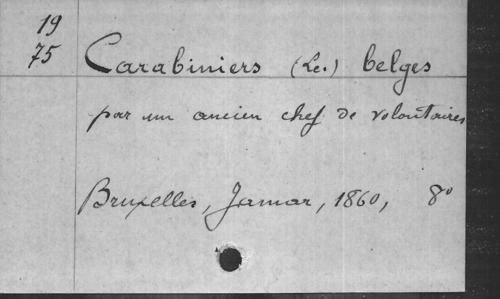 19
75
Carabiniers (Le.) belges
par un ancien chef de volontaires
Bruxelles, Jamar, 1860, 8°